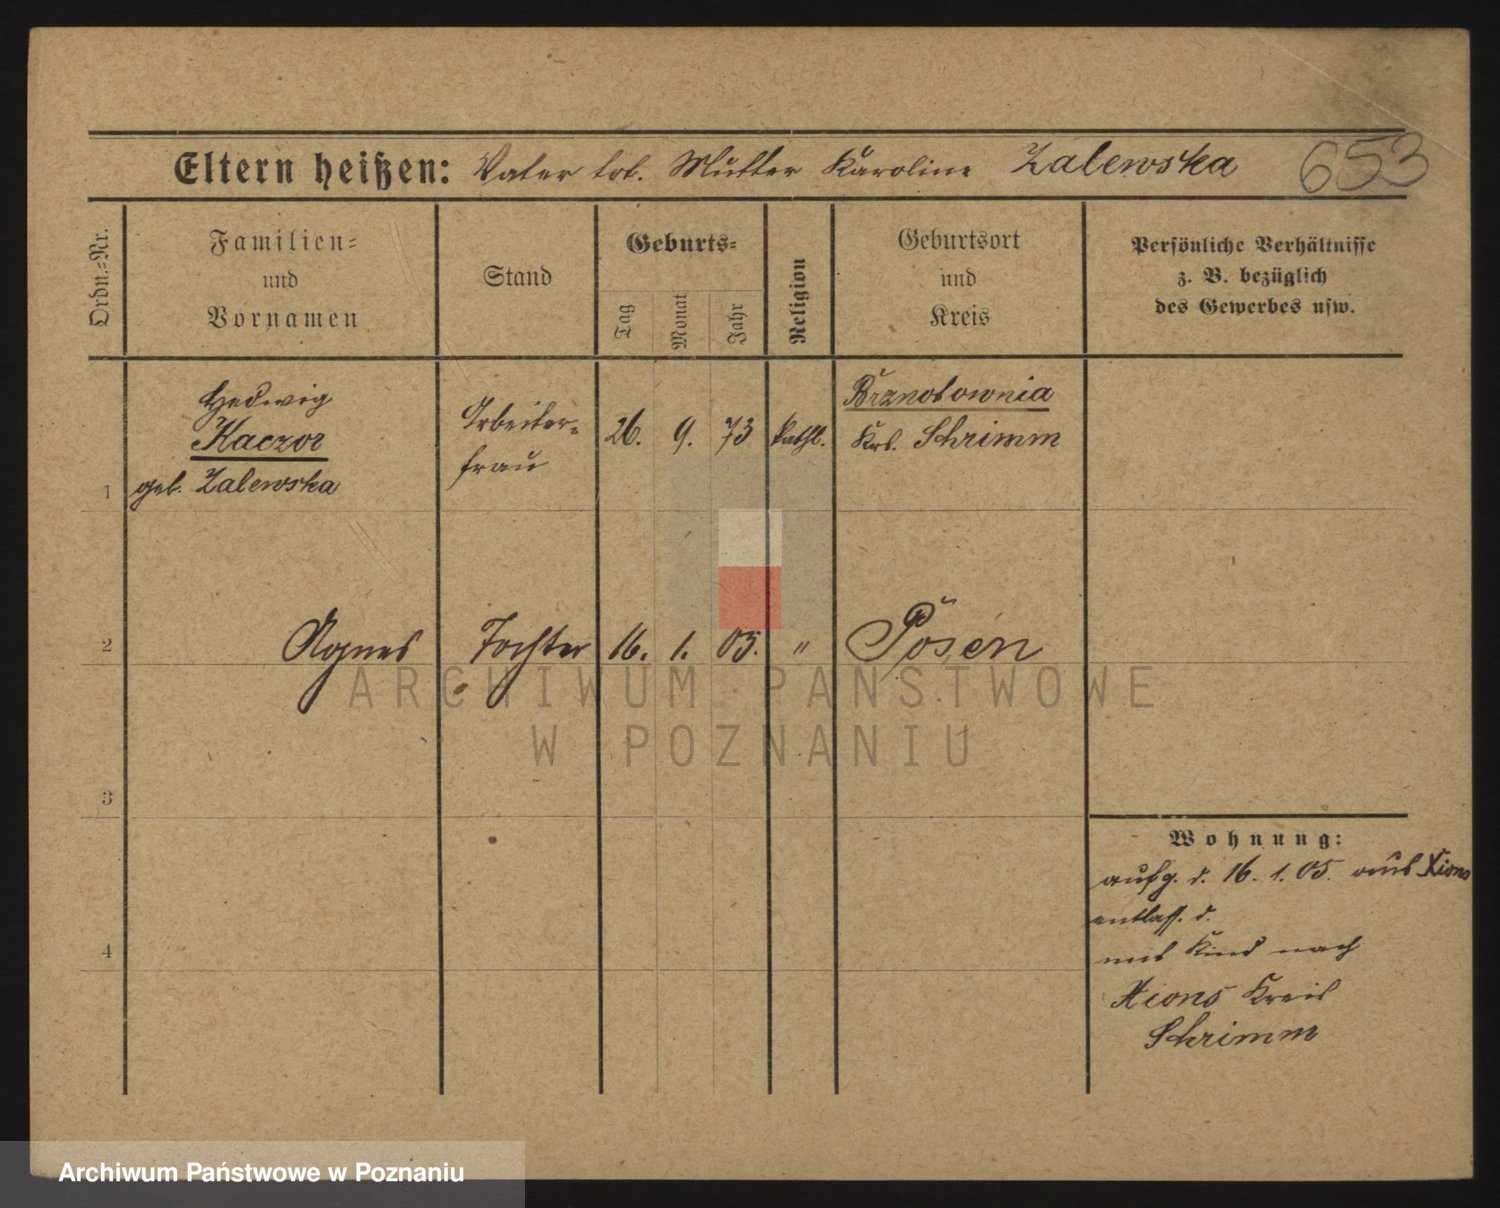 Eltern heißen: Vater tot. Mutter Karoline Zalewska 653
Ordn.-Nr.
Familien-
und
Vornamen
Stand
Geburts-
Tag
Monat
Jahr
Religion
Geburtsort
und
Kreis
Persönliche Verhältnisse
z. B. bezüglich
des Gewerbes usw.
1
Hedwig
Kaczor
geb. Zalewska
Arbeiter-
frau
26. 9. 73 kath.
Brznotownia
Krs. Schrimm
2 Agnes Tochter 16. 1. 05. " Posen
3
4
Wohnung:
aufg. d. 16. 1. 05. aus Xions
entlass. d.
mit Kind nach
Xions Kreis
Schrimm
ARCHIWUM PAŃSTWOWE
W POZNANIU
Archiwum Państwowe w Poznaniu